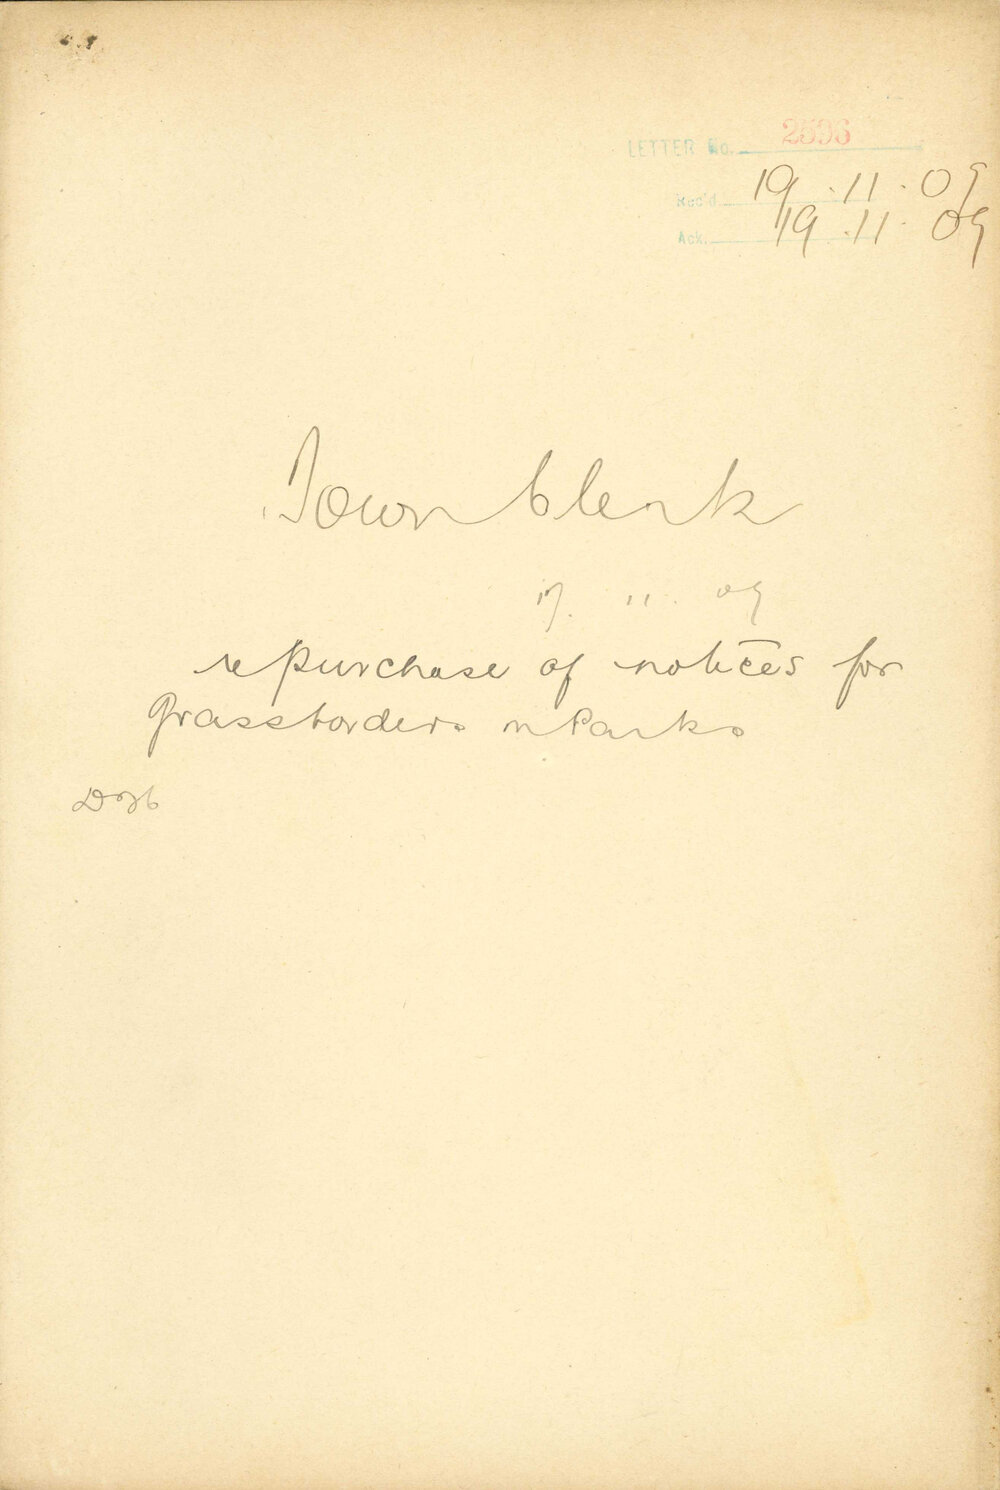 LETTER No. 2596
Rec'd 19.11.09
Ack. 19.11.09
Town Clerk
17. 11. 09
re purchase of notices for
Grassborders in Parks